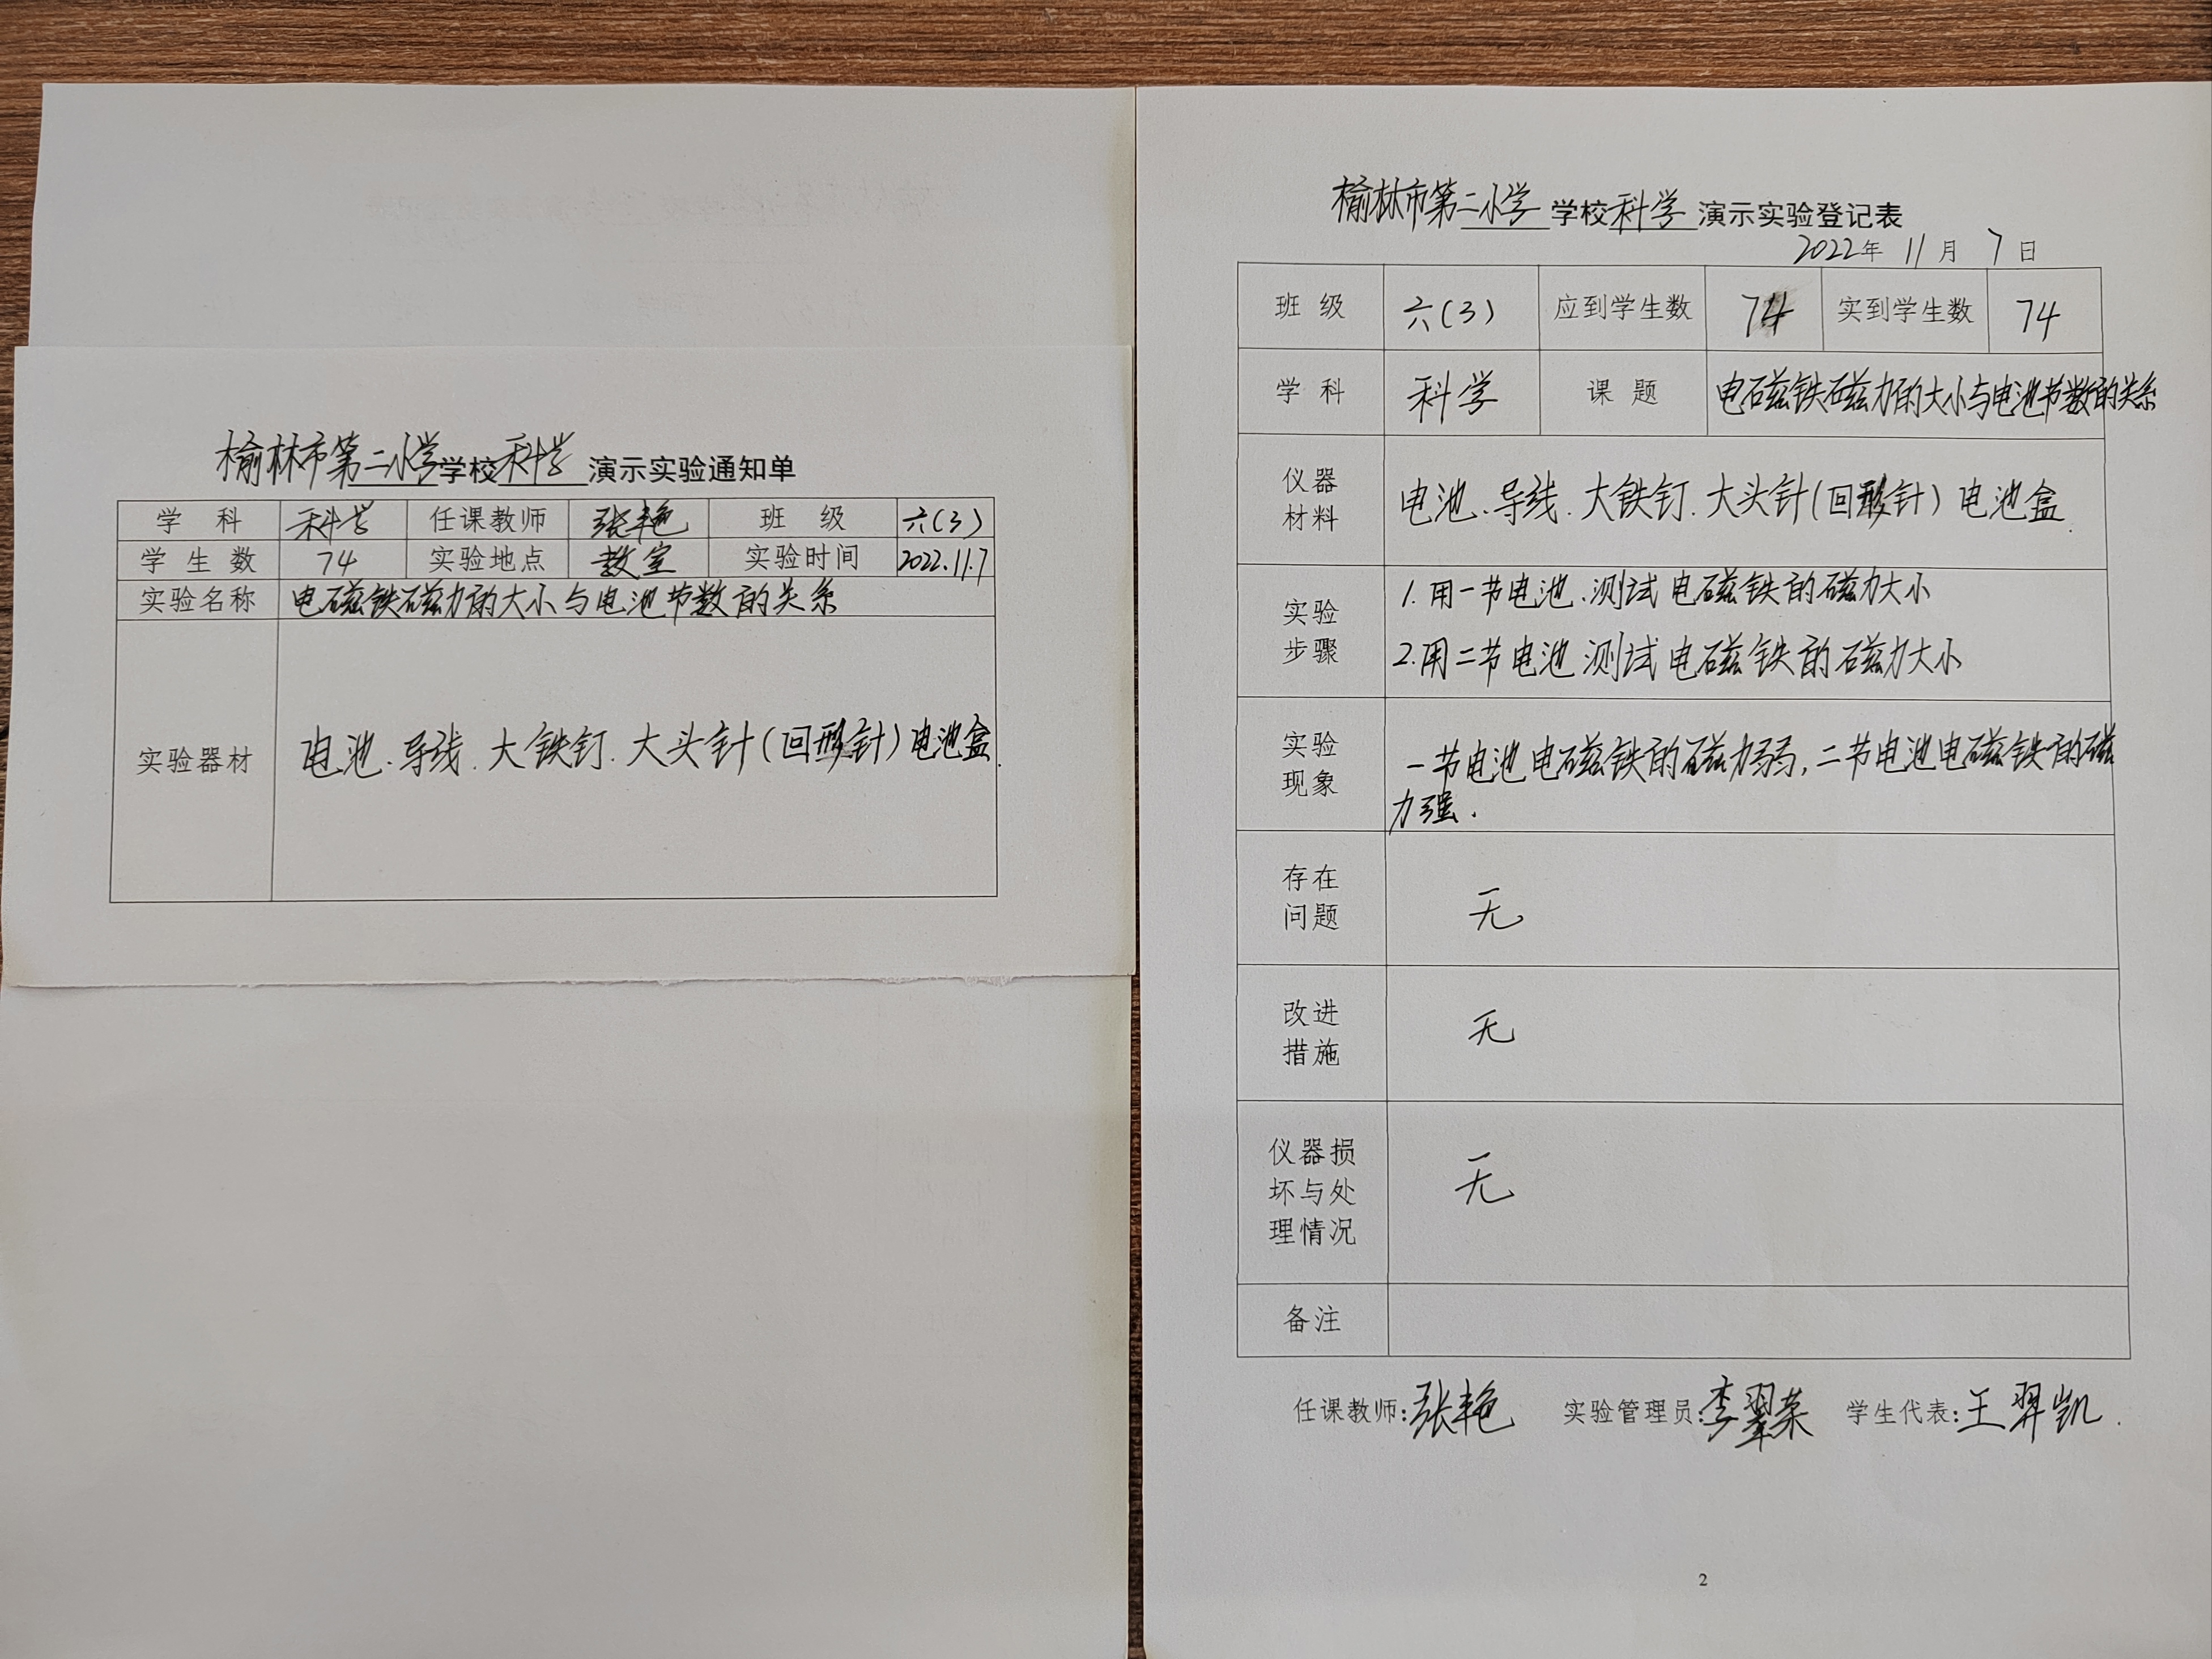 榆林市第二小学学校科学演示实验通知单
学 科 科学 任课教师 张艳 班 级 六(3)
学 生 数 74 实验地点 教室 实验时间 2022.11.7
实验名称 电磁铁磁力的大小与电池节数的关系
实验器材 电池、导线.大铁钉.大头针(回形针)电池盒.
榆林市第二小学学校科学演示实验登记表
2022年 11月 7日
班 级 六(3) 应到学生数 74 实到学生数 74
学 科 科学 课 题 电磁铁磁力的大小与电池节数的关系
仪器
材料
电池、导线.大铁钉.大头针(回形针)电池盒.
实验
步骤
1.用一节电池、测试电磁铁的磁力大小
2.用二节电池 测试电磁铁的磁力大小
实验
现象
一节电池电磁铁的磁力弱,二节电池电磁铁的磁
力强.
存在
问题
无
改进
措施
无
仪器损
坏与处
理情况
无
备注
任课教师:张艳 实验管理员:李翠荣 学生代表:王羿凯.
2